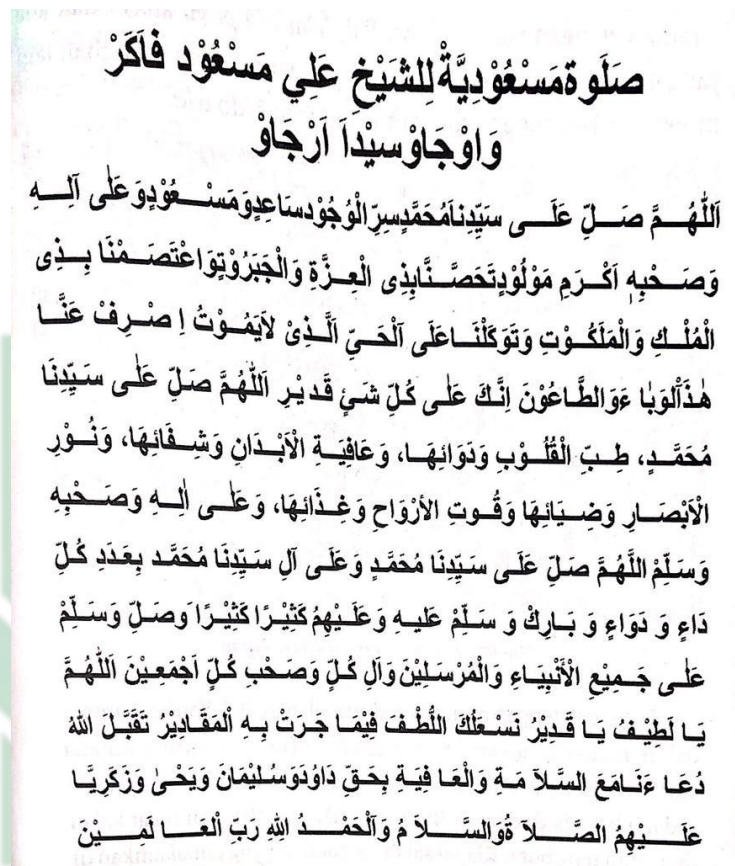 صَلَوةمَسْعُوْدِيَّةْ لِلشَيْخِ عَلِي مَسْعُوْد فاَكَرْ
وَاوْجَاوْسيْداَ اَرْجَاوْ
اَللّٰهُمَّ صَلِّ عَلَى سَيِّدِناَمُحَمَّدٍسِرِّالْوُجُوْدِسَاعِدٍوَمَسْعُوْدٍوَعَلٰى آلِهِ
وَصَحْبِهِ اَكْرَمِ مَوْلُوْدٍتَحَصَّنَّابِذِى الْعِزَّةِ وَالْجَبَرُوْتِوَاعْتَصَمْنَا بِذِى
الْمُلْكِ وَالْمَلَكُوْتِ وَتَوَكَّلْنَاعَلَى اَلْحَيِّ اَلَّذِىْ لاَيَمُوْتُ اِ صْرِفْ عَنَّا
هٰذَاْلوَبٰا ءَوَالطَّاعُوْنَ اِنَّكَ عَلٰى كُلِّ شَئٍ قَدِيْرِ اَللّٰهُمَّ صَلِّ عَلٰى سَيِّدِنَا
مُحَمَّدٍ، طِبِّ الْقُلُوْبِ وَدَوَائِهَا، وَعَافِيَةِ الْاَبْدَانِ وَشِفَائِهَا، وَنُوْرِ
الْاَبْصَارِ وَضِيَائِهَا وَقُوتِ الأرْوَاحِ وَغِذَائِهَا، وَعَلٰى اٰلِهِ وَصَحْبِهِ
وَسَلِّمْ اللَّهُمَّ صَلِّ عَلَى سَيِّدِنَا مُحَمَّدٍ وَعَلَى آلِ سَيِّدِنَا مُحَمَّد بِعَدَدِ كُلِّ
دَاءٍ وَ دَوَاءٍ وَ بَارِكْ وَ سَلِّمْ عَليهِ وَعَلَيْهِمُ كَثِيْرًا كَثِيْرًاوَصَلِّ وَسَلِّمْ
عَلٰى جَمِيْعِ الْأَنْبِيَاءِ وَالْمُرْسَلِيْنَ وَآلِ كُلٍّ وَصَحْبِ كُلٍّ اَجْمَعِيْنَ اَللّٰهُمَّ
يَا لَطِيْفُ يَا قَدِيْرُ نَسْعَلُكَ اللُّطْفَ فِيْمَا جَرَتْ بِهِ اْلمَقَادِيْرُ تَقَبَّلَ اللهُ
دُعَا ءَنَامَعَ السَّلاَ مَةِ وَالْعَا فِيَةِ بِحَقِّ دَاوُدَوَسُلَيْمَانَ وَيَحْىٰ وَزَكَرِيَّا
عَلَيْهِمُ الصَّلاَ ةُوَالسَّلاَ مُ وَاَلْحَمْدُ لِلّٰهِ رَبِ اْلعَا لَمِيْنَ